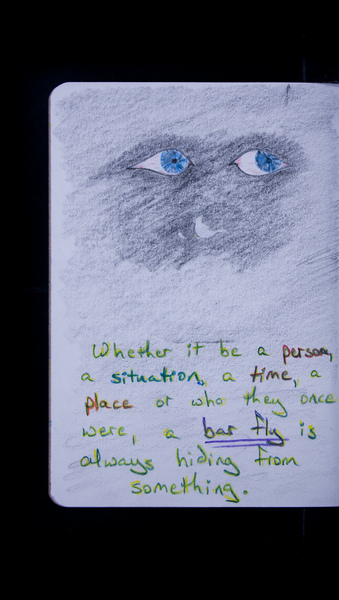 Whether it be a person,
a situation, a time, a
place or who they once
were, a bar fly is
always hiding from
something.